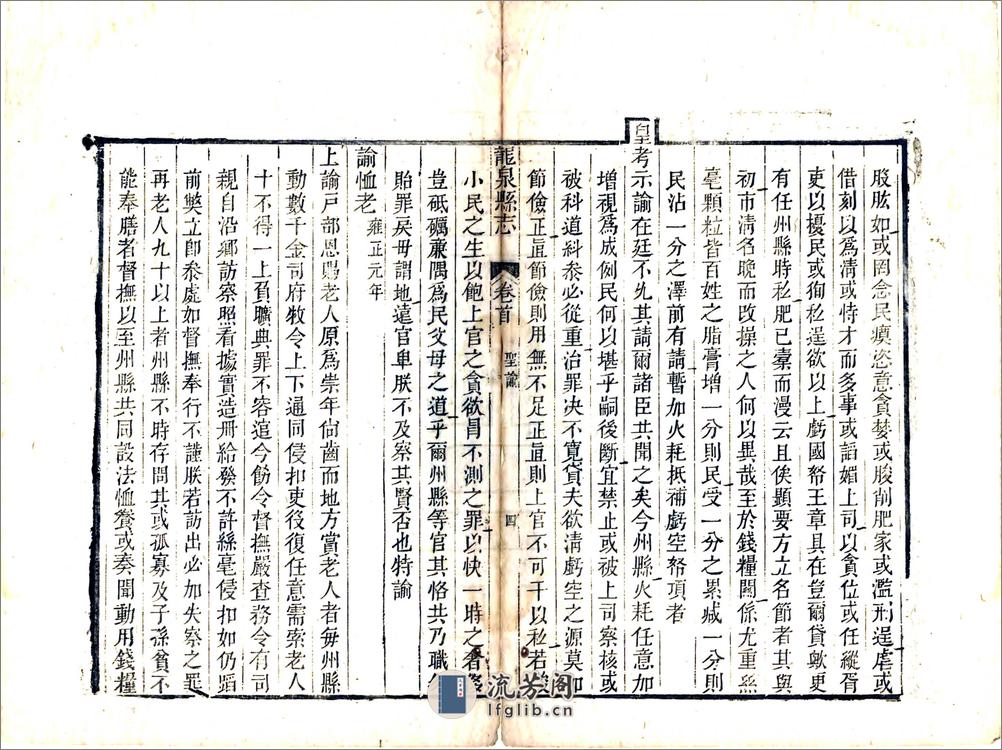 股肱如或罔念民瘼恣意貪婪或朘削肥家或濫刑逞虐或
借刻以為清或恃才而多事或謟媚上司以貪位或任縱胥
吏以擾民或狥私逞欲以上虧國帑王章具在豈爾貸歟更
有任州縣時私肥已槖而漫云且俟顯要方立名節者其與
初市清名晚而改操之人何以異哉至於錢糧關係尤重絲
毫顆粒皆百姓之脂膏增一分則民受一分之累减一分則
民沾一分之澤前有請暫加火耗抵補虧空帑項者
皇考示諭在廷不允其請爾諸臣共聞之矣今州縣火耗任意加
增視爲成例民何以堪乎嗣後斷宜禁止或被上司察核或
被科道糾叅必從重治罪决不寛貸夫欲清虧空之源莫如
節儉正直節儉則用無不足正直則上官不可干以私若
龍泉縣志
卷首
聖諭
四
小民之生以飽上官之貪欲冒不測之罪以快一時之奢
豈砥礪亷隅爲民父母之道乎爾州縣等官其恪共乃職
貽罪戾毋謂地遠官卑朕不及察其賢否也特諭
諭恤老 雍正元年
上諭戸部恩賜老人原爲崇年尙齒而地方賞老人者每州縣
動數千金司府牧令上下通同侵扣吏役復任意需索老人
十不得一上負曠典罪不容逭今飭令督撫嚴查務令有司
親自沿鄉訪察照看據實造册給發不許絲毫侵扣如仍蹈
前獘立卽叅處如督撫奉行不謹朕若訪出必加失察之罪
再老人九十以上者州縣不時存問其或孤寡及子孫貧不
能奉膳者督撫以至州縣共同設法恤養或奏聞動用錢糧
流芳阁
lfglib.cn